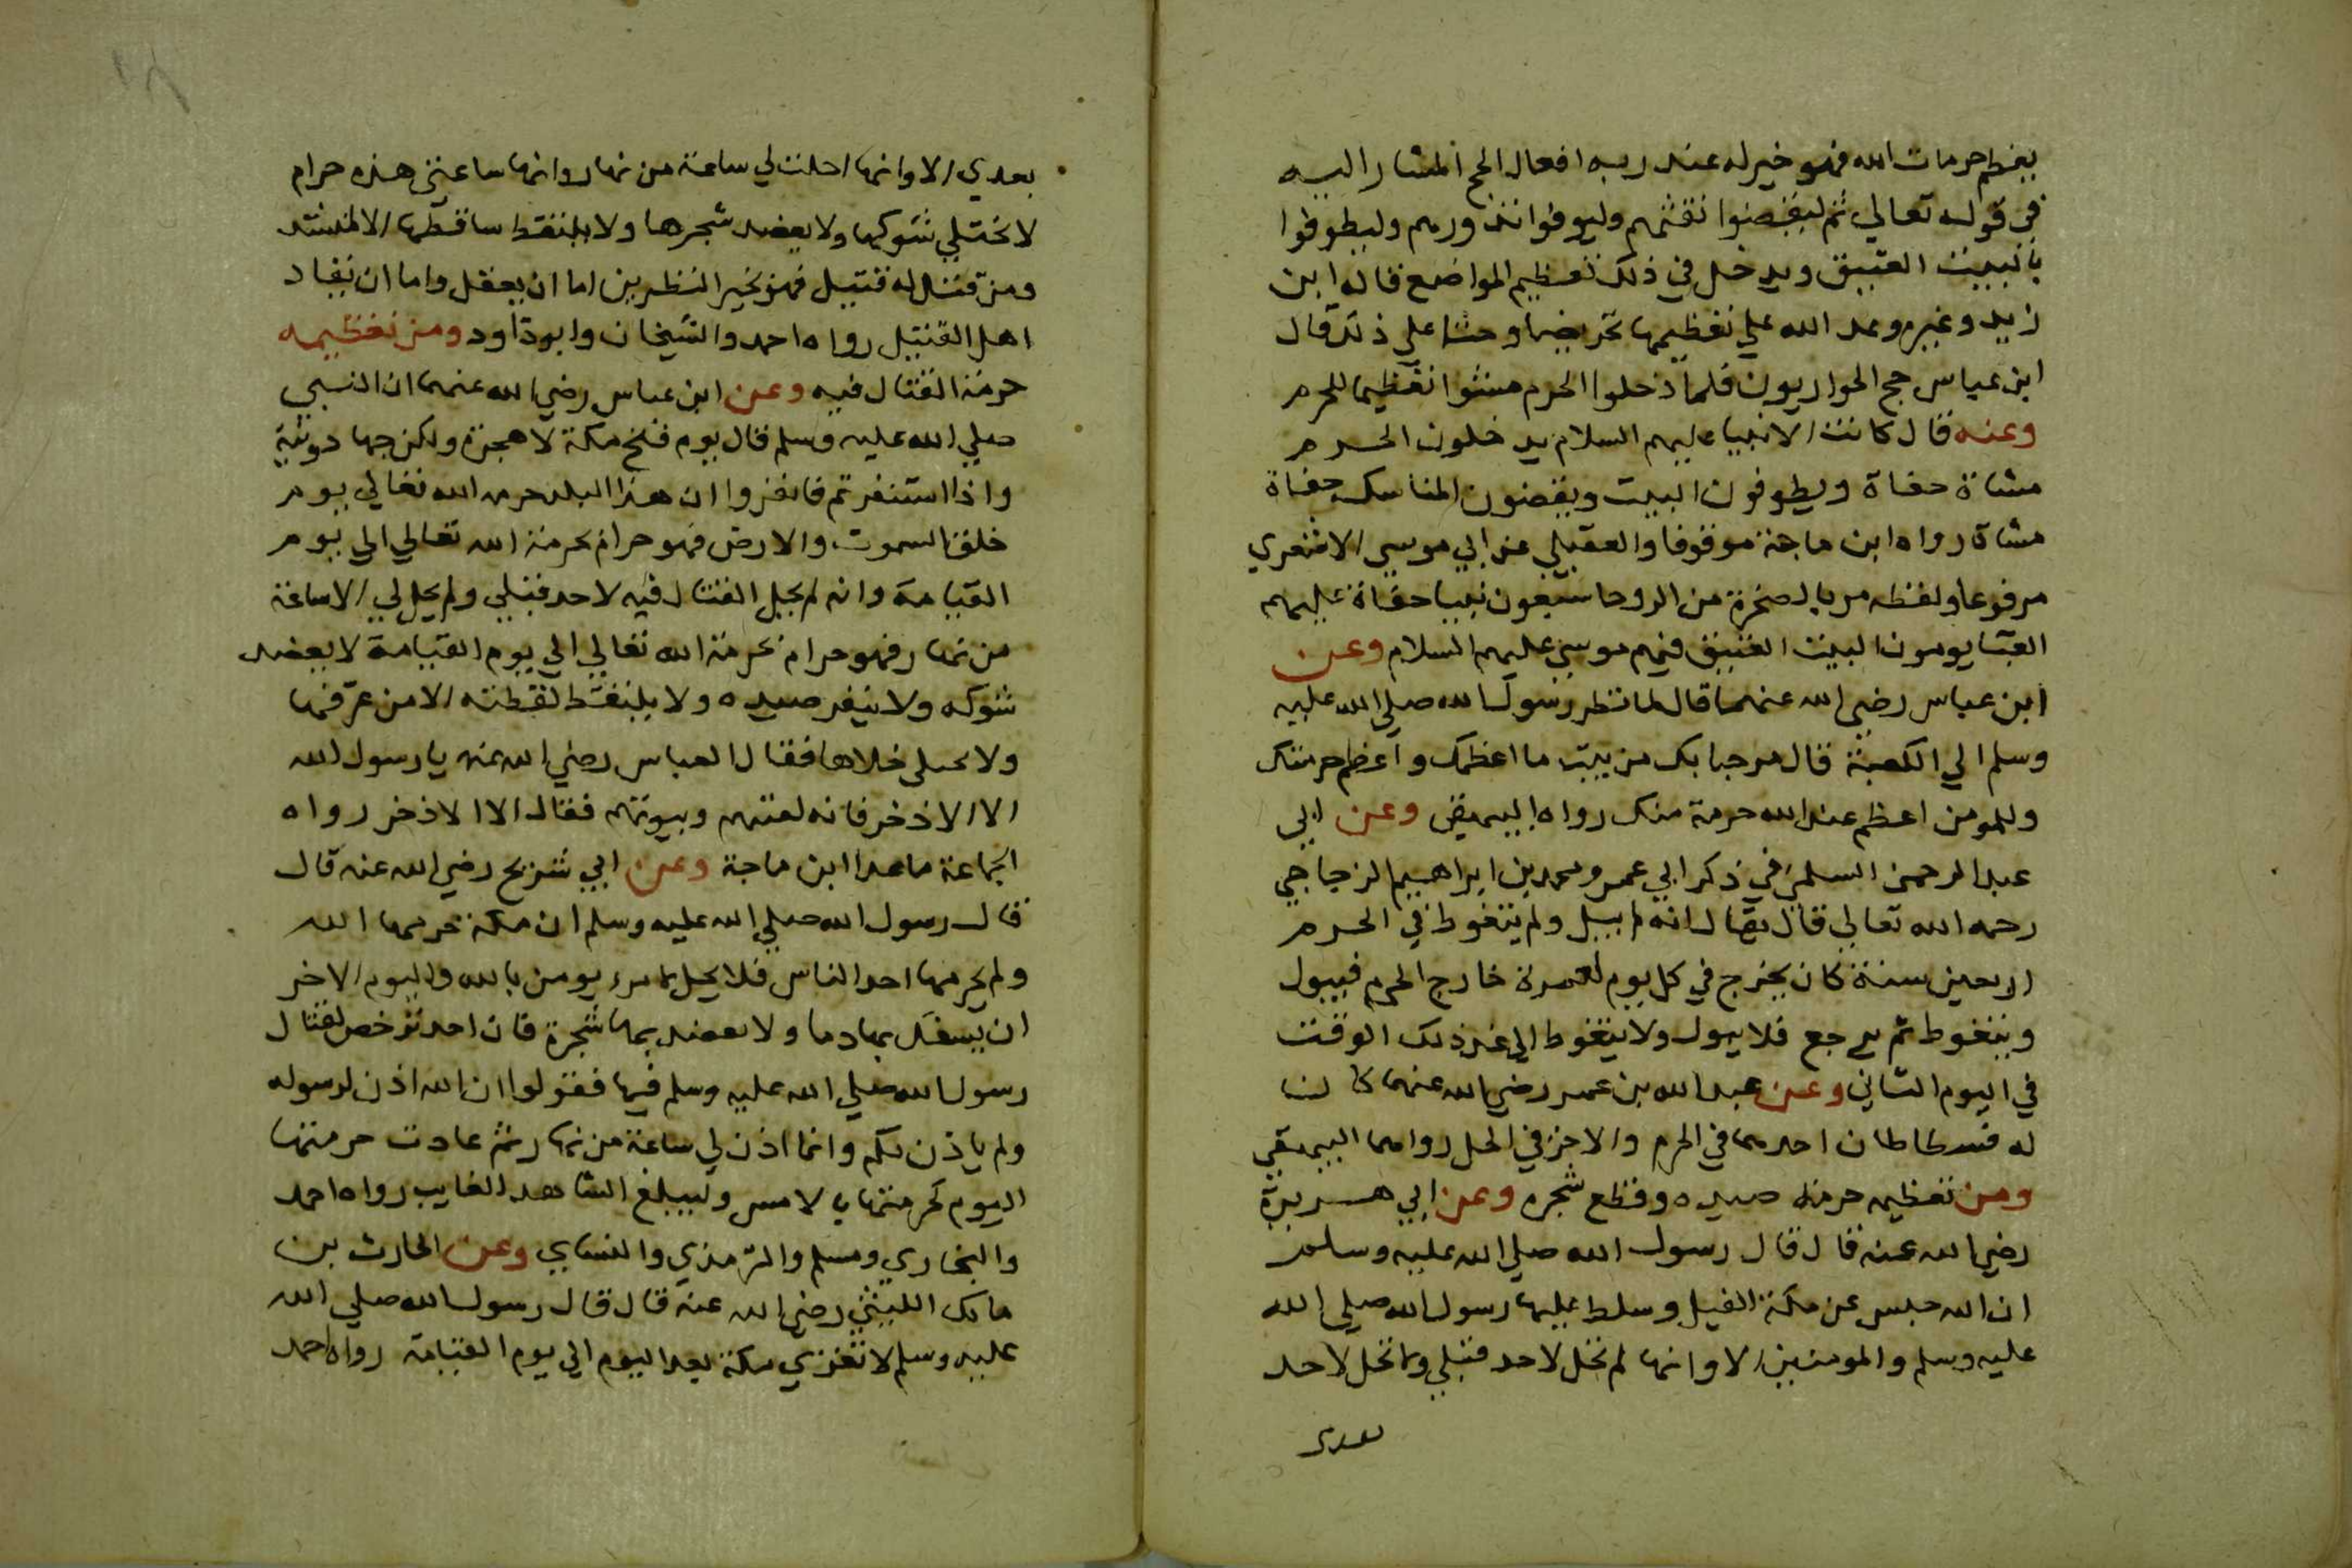 يعظم حرمات الله فهو خير له عند ربه افعال الحج المشار اليه
في قوله تعالي ثم ليقضوا تفثهم وليوفوا نذورهم وليطوفوا
بالبيت العتيق ويدخل في ذلك تعظيم المواضع قاله ابن
زيد وغيره وعد الله علي تعظيمها تحريضا وحثا علي ذلك قال
ابن عباس حج الحواريون فلما دخلوا الحرم مشوا تعظيما للحرم
وعنه قال كانت الانبيا عليهم السلام يدخلون الحرم
مشاة حفاة ويطوفون البيت ويقضون المناسك حفاة
مشاة رواه ابن ماجة موقوفا والعقيلي عن ابي موسي الاشعري
مرفوعا ولفظه مر بالصخرة من الروحا سبعون نبيا حفاة عليهم
العبا يومون البيت العتيق فيهم موسي عليهم السلام وعن
ابن عباس رضي الله عنهما قال لما نظر رسول الله صلي الله عليه
وسلم الي الكعبة قال مرحبا بك من بيت ما اعظمك واعظم حرمتك
وللمومن اعظم عند الله حرمة منك رواه البيهقي وعن ابي
عبد الرحمن السلمي في ذكر ابي عمرو محمد بن ابراهيم الزجاجي
رحمه الله تعالي قال يقال انه لم يبل ولم يتغوط في الحرم
اربعين سنة كان يخرج في كل يوم لعمرة خارج الحرم فيبول
ويتغوط ثم يرجع فلا يبول ولا يتغوط الي غد ذلك الوقت
في اليوم الثاني وعن عبد الله بن عمر رضي الله عنهما كانت
له فسطاطان احدهما في الحرم والاخر في الحل رواهما البيهقي
ومن تعظيمه حرمة صيده وقطع شجره وعن ابي هريرة
رضي الله عنه قال قال رسول الله صلي الله عليه وسلم
ان الله حبس عن مكة الفيل وسلط عليها رسول الله صلي الله
عليه وسلم والمومنين الا وانها لم تحل لاحد قبلي ولا تحل لاحد
بعدي
بعدي الا وانها احلت لي ساعة من نهار وانها ساعتي هذه حرام
لا يختلي شوكها ولا يعضد شجرها ولا يلتقط ساقطها الا لمنشد
ومن قتل له قتيل فهو بخير النظرين اما ان يعقل واما ان يقاد
اهل القتيل رواه احمد والشيخان وابو داود ومن تعظيمه
حرمة القتال فيه وعن ابن عباس رضي الله عنهما ان النبي
صلي الله عليه وسلم قال يوم فتح مكة لا هجرة ولكن جهاد ونية
واذا استنفرتم فانفروا ان هذا البلد حرمه الله تعالي يوم
خلق السموت والارض فهو حرام بحرمة الله تعالي الي يوم
القيامة وانه لم يحل القتال فيه لاحد قبلي ولم يحل لي الا ساعة
من نهار فهو حرام بحرمة الله تعالي الي يوم القيامة لا يعضد
شوكه ولا ينفر صيده ولا يلتقط لقطته الا من عرفها
ولا يختلى خلاها فقال العباس رضي الله عنه يا رسول الله
الا الاذخر فانه لقينهم وبيوتهم فقال الا الاذخر رواه
الجماعة ما عدا ابن ماجة وعن ابي شريح رضي الله عنه قال
قال رسول الله صلي الله عليه وسلم ان مكة حرمها الله
ولم يحرمها احد الناس فلا يحل لامرء يومن بالله واليوم الاخر
ان يسفك بها دما ولا يعضد بها شجرة فان احد ترخص لقتال
رسول الله صلي الله عليه وسلم فيها فقولوا ان الله اذن لرسوله
ولم ياذن لكم وانما اذن لي ساعة من نهار ثم عادت حرمتها
اليوم كحرمتها بالامس وليبلغ الشاهد الغايب رواه احمد
والبخاري ومسلم والترمذي والنساي وعن الحارث بن
مالك الليثي رضي الله عنه قال قال رسول الله صلي الله
عليه وسلم لا تغزي مكة بعد اليوم الي يوم القيامة رواه احمد